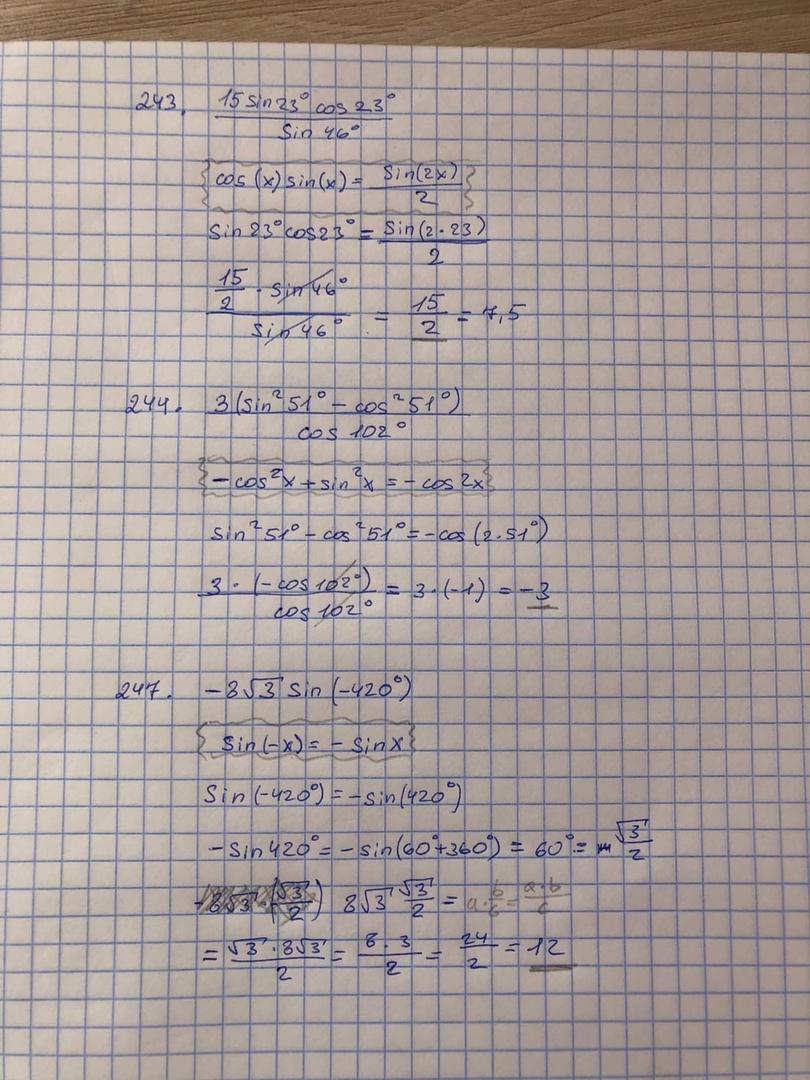 243. 15 sin 23° cos 23° / sin 46°
cos (x) sin(x) = sin(2x) / 2
sin 23° cos 23° = sin(2 · 23) / 2
15/2 · sin 46° / sin 46° = 15/2 = 7,5
244. 3 (sin² 51° − cos² 51°) / cos 102°
−cos²x + sin²x = −cos 2x
sin² 51° − cos² 51° = −cos (2·51°)
3 · (−cos 102°) / cos 102° = 3 · (−1) = −3
247. −8√3 sin (−420°)
sin (−x) = − sin x
sin (−420°) = −sin (420°)
−sin 420° = −sin (60°+360°) = 60° = √3/2
−8√3 · (√3/2) 8√3 √3/2 = a · b/c = a·b/c
= √3 · 8√3 / 2 = 8 · 3 / 2 = 24/2 = 12